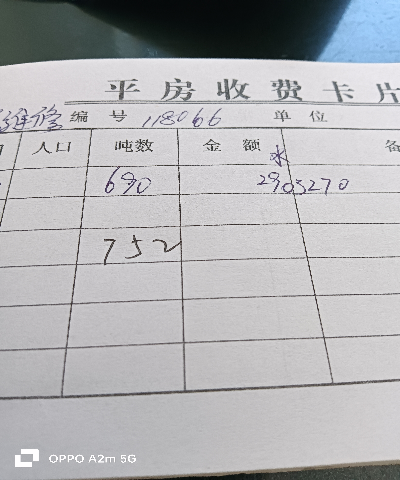 平房收费卡片
维修 编号 118066 单位
人口 吨数 金额 水 备
690 2905270
752
OPPO A2m 5G